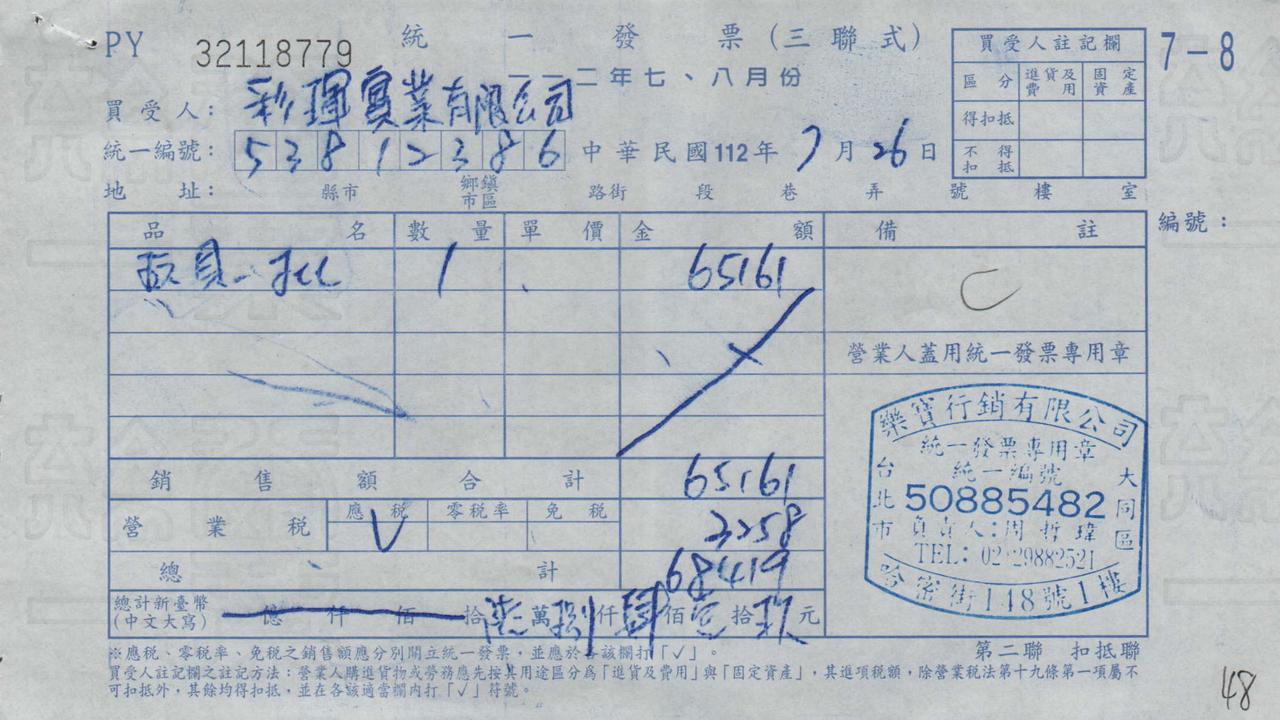 PY 32118779 統一發票(三聯式) 7-8
一一二年七、八月份
買受人註記欄
區分 進貨及費用 固定資產
得扣抵
不得扣抵
買受人: 彩琿實業有限公司
統一編號: 53812386 中華民國112年 7月26日
地址: 縣市 鄉鎮市區 路街 段 巷 弄 號 樓 室
編號:
品名 數量 單價 金額 備註
一批 1 65161
營業人蓋用統一發票專用章
銷售額合計 65161
營業稅 應稅 V 零稅率 免稅 3258
總計 68419
總計新臺幣(中文大寫) 億 仟 佰 拾 陸萬捌仟肆佰壹拾玖元
樂寶行銷有限公司
統一發票專用章
統一編號
50885482
台北市 大同區
負責人:周哲瑋
TEL:02-29882521
哈密街148號1樓
※應稅、零稅率、免稅之銷售額應分別開立統一發票,並應於各該欄打「✓」。
第二聯 扣抵聯
買受人註記欄之註記方法:營業人購進貨物或勞務應先按其用途區分為「進貨及費用」與「固定資產」,其進項稅額,除營業稅法第十九條第一項屬不
可扣抵外,其餘均得扣抵,並在各該適當欄內打「✓」符號。
48